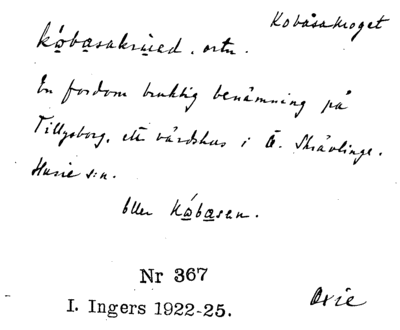 Kobåsakroget
kåbasakrued, ortn.
En fordom bruklig benämning på
Tillysborg, ett värdshus i Ö. Skrävlinge,
Husie s:n.
Eller Kåbasen.
Nr 367
I. Ingers 1922-25.
Oxie